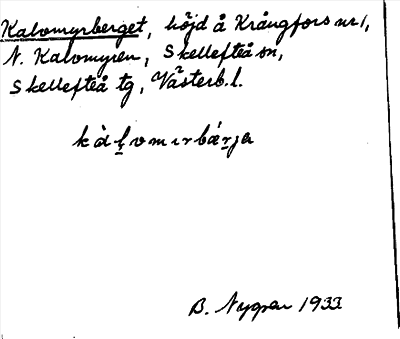 Kalvomyrberget, höjd å Krångfors nr 1,
N. Kalvomyren, Skellefteå sn,
Skellefteå tg, Västerb. l.
kàḷvomırbárja
B. Nygren 1933